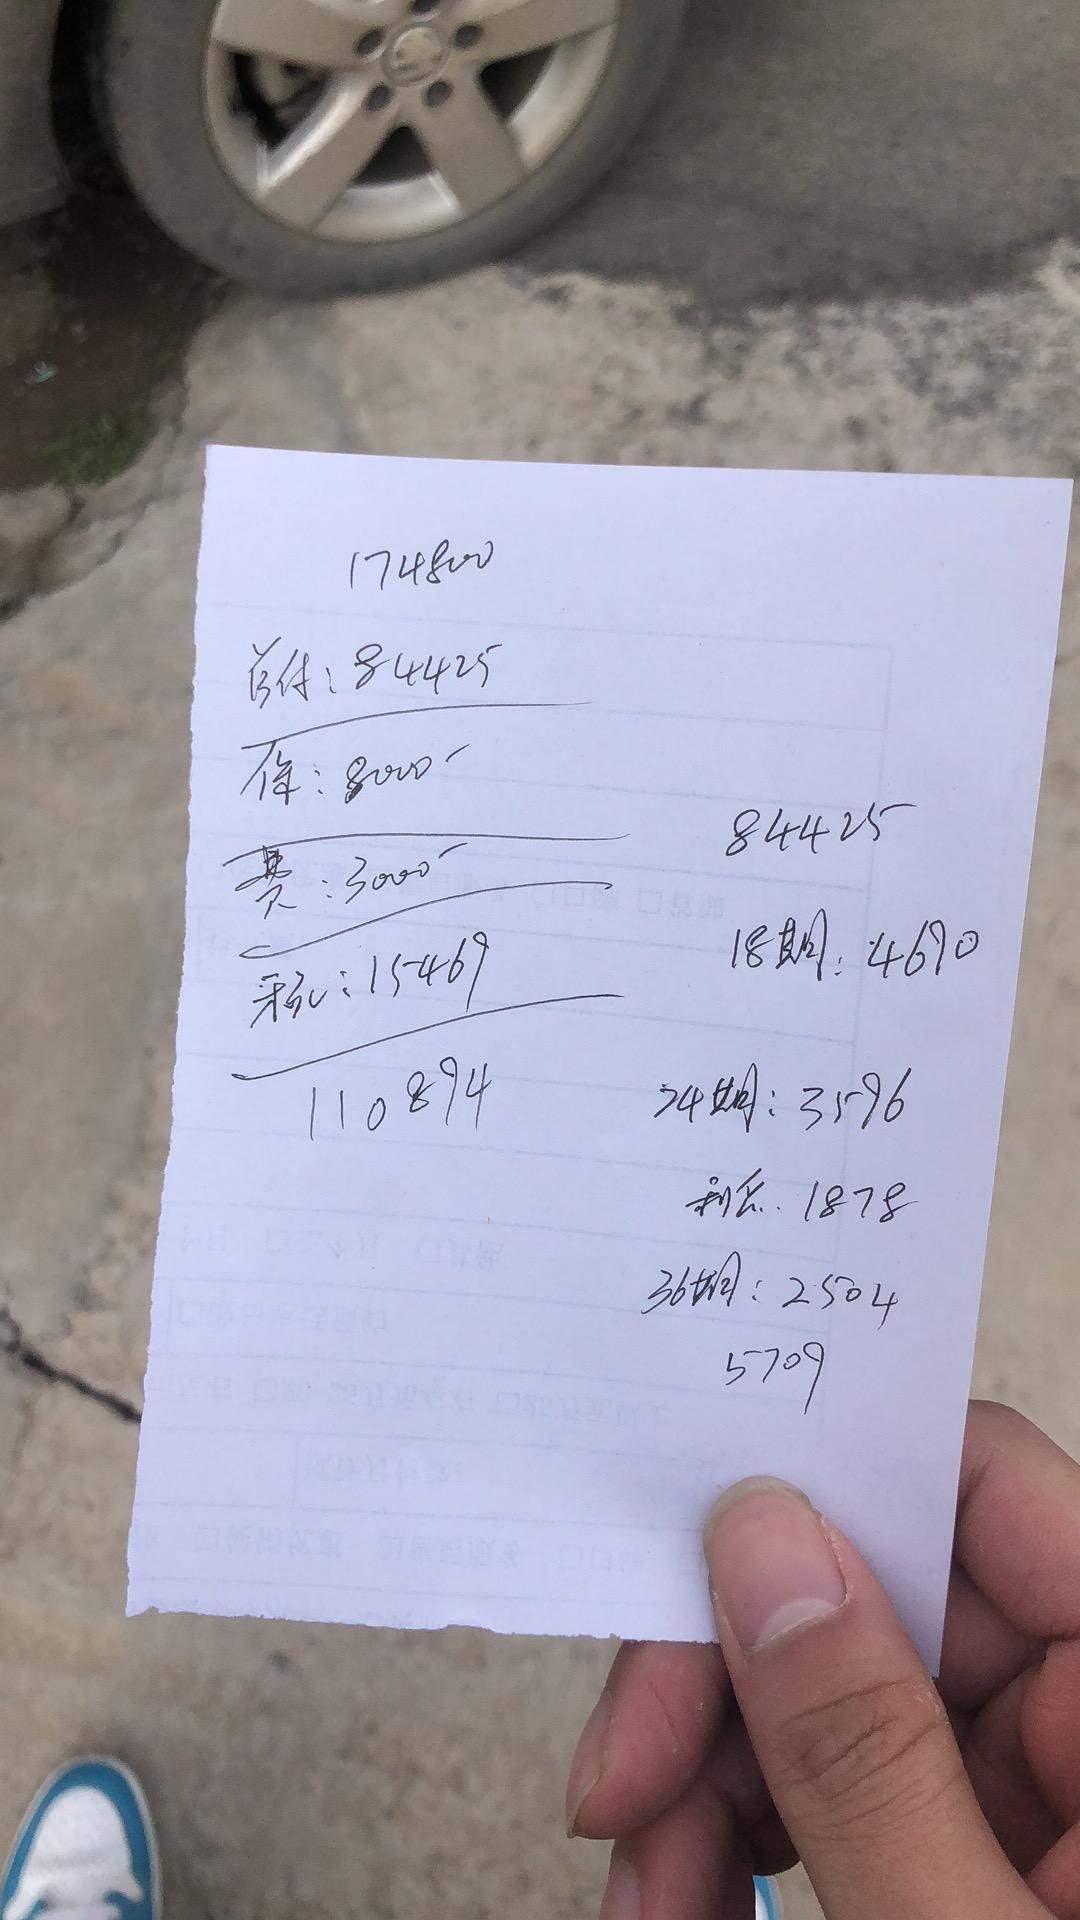 174800
首付：84425
保：8000
费：3000
税：15469
110894
84425
18期：4690
24期：3596
利息：1878
36期：2504
5709